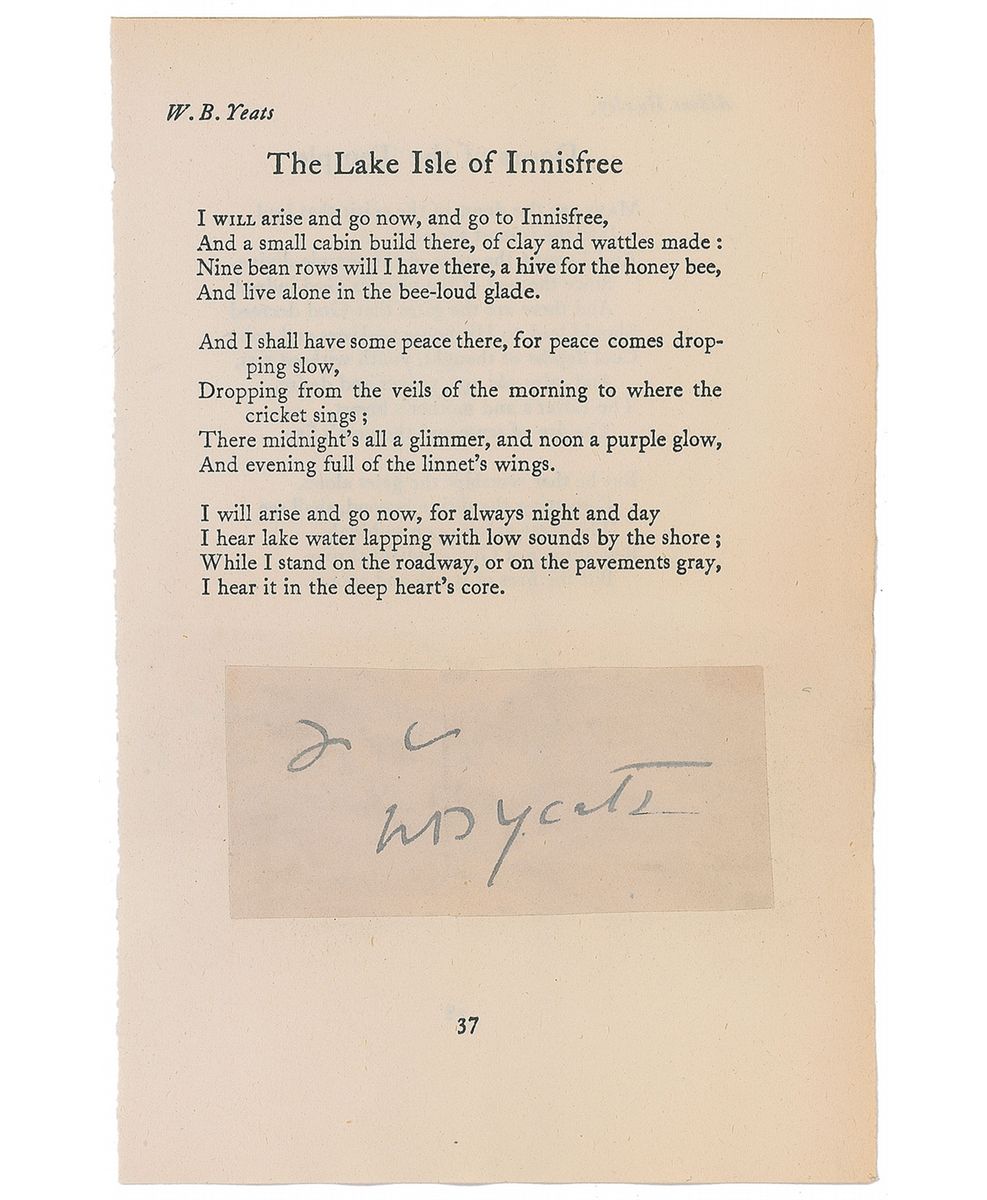 W. B. Yeats
The Lake Isle of Innisfree
I WILL arise and go now, and go to Innisfree,
And a small cabin build there, of clay and wattles made :
Nine bean rows will I have there, a hive for the honey bee,
And live alone in the bee-loud glade.
And I shall have some peace there, for peace comes drop-
ping slow,
Dropping from the veils of the morning to where the
cricket sings ;
There midnight's all a glimmer, and noon a purple glow,
And evening full of the linnet's wings.
I will arise and go now, for always night and day
I hear lake water lapping with low sounds by the shore ;
While I stand on the roadway, or on the pavements gray,
I hear it in the deep heart's core.
WB Yeats
37